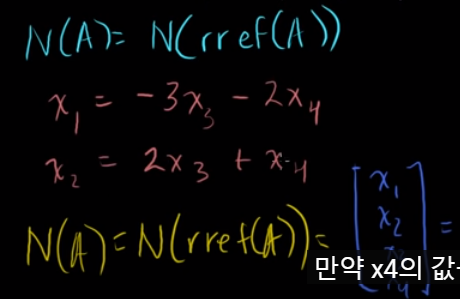 N(A) = N(rref(A))
x₁ = -3x₃ - 2x₄
x₂ = 2x₃ + x₄
N(A) = N(rref(A)) = [x₁ x₂ =
만약 x4의 값